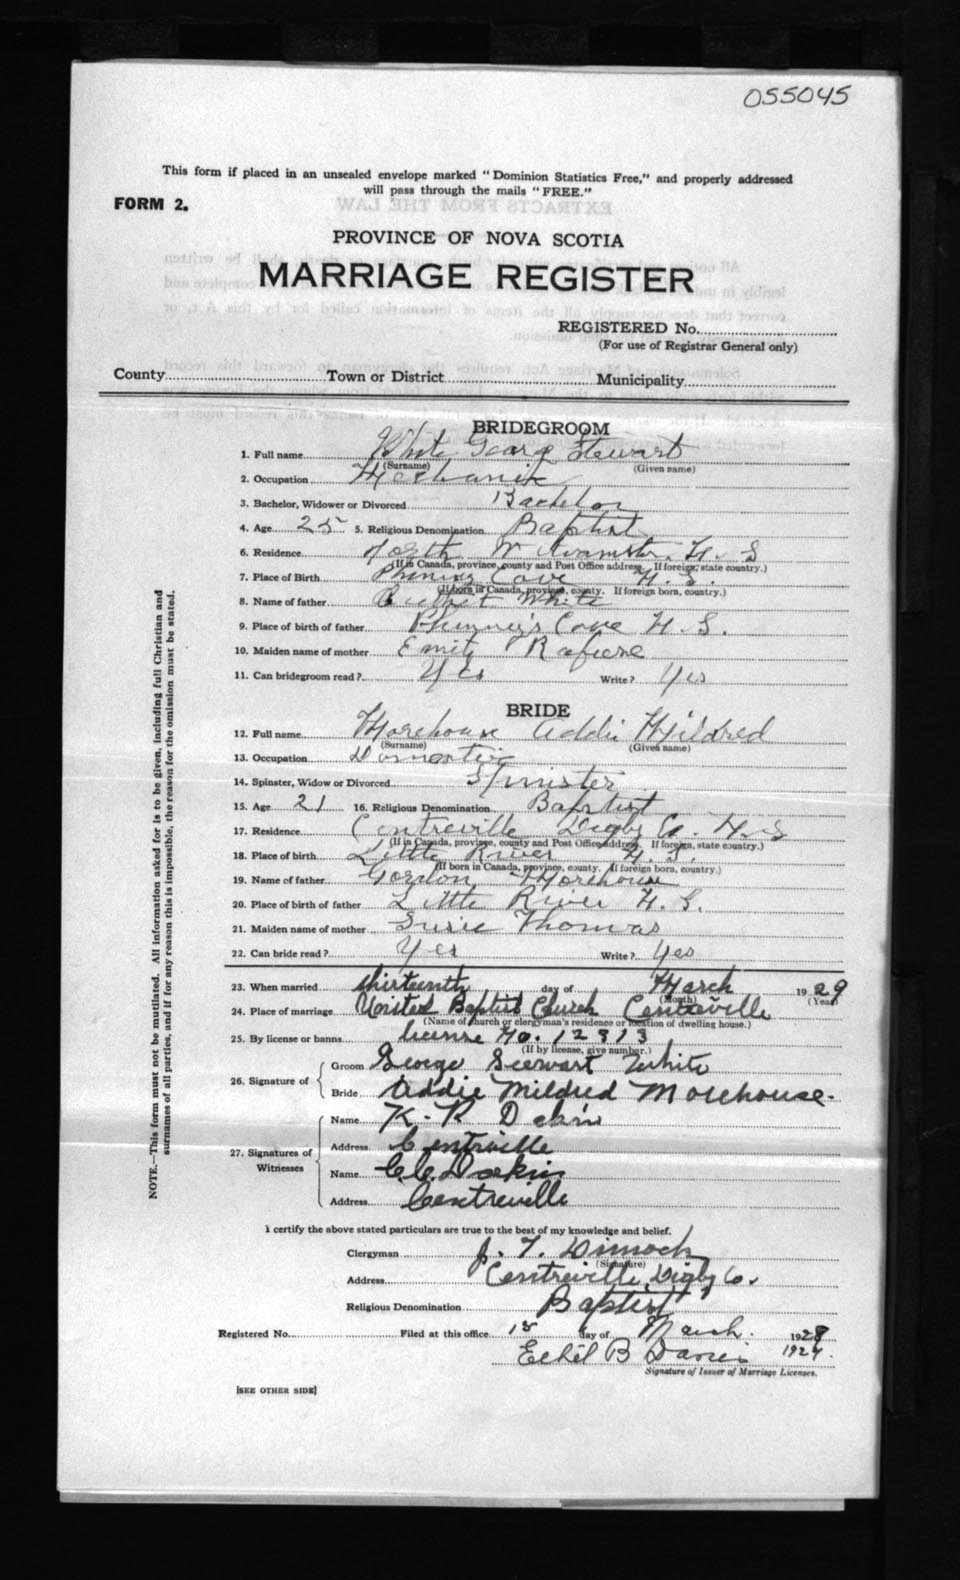 055045
This form if placed in an unsealed envelope marked "Dominion Statistics Free," and properly addressed
will pass through the mails "FREE."
FORM 2.
PROVINCE OF NOVA SCOTIA
MARRIAGE REGISTER
REGISTERED No.
(For use of Registrar General only)
County Town or District Municipality
BRIDEGROOM
1. Full name White George Stewart
(Surname) (Given name)
2. Occupation Mechanic
3. Bachelor, Widower or Divorced Bachelor
4. Age 25 5. Religious Denomination Baptist
6. Residence North W N. S
(If in Canada, province, county and Post Office address. If foreign, state country.)
7. Place of Birth Cove N. S.
(If born in Canada, province, county. If foreign born, country.)
8. Name of father White
9. Place of birth of father Phinney's Cove N. S.
10. Maiden name of mother
11. Can bridegroom read? Yes Write? Yes
BRIDE
12. Full name Morehouse Addie Mildred
(Surname) (Given name)
13. Occupation Domestic
14. Spinster, Widow or Divorced Spinister
15. Age 21 16. Religious Denomination Baptist
17. Residence Centreville Digby Co. N. S
(If in Canada, province, county and Post Office address. If foreign, state country.)
18. Place of birth Little River N. S.
(If born in Canada, province, county. If foreign born, country.)
19. Name of father Gordon Morehouse
20. Place of birth of father Little River N. S.
21. Maiden name of mother Susie Thomas
22. Can bride read? Yes Write? Yes
23. When married thirteenth day of March 1929
(Month) (Year)
24. Place of marriage United Baptist Church Centreville
(Name of church or clergyman's residence or location of dwelling house.)
25. By license or banns license No. 12313
(If by license, give number.)
26. Signature of
Groom George Stewart White
Bride Addie Mildred Morehouse.
27. Signatures of Witnesses
Name K. R Dakin
Address Centreville
Name C. C. Dakin
Address Centreville
I certify the above stated particulars are true to the best of my knowledge and belief.
Clergyman J. T. Dimock
(Signature)
Address Centreville, Digby Co.
Religious Denomination Baptist
Registered No. Filed at this office 15 day of March. 1929
Ethel B Davis 1929.
Signature of Issuer of Marriage Licenses.
[SEE OTHER SIDE]
NOTE.—This form must not be mutilated. All information asked for is to be given, including full Christian and
surnames of all parties, and if for any reason this is impossible, the reason for the omission must be stated.